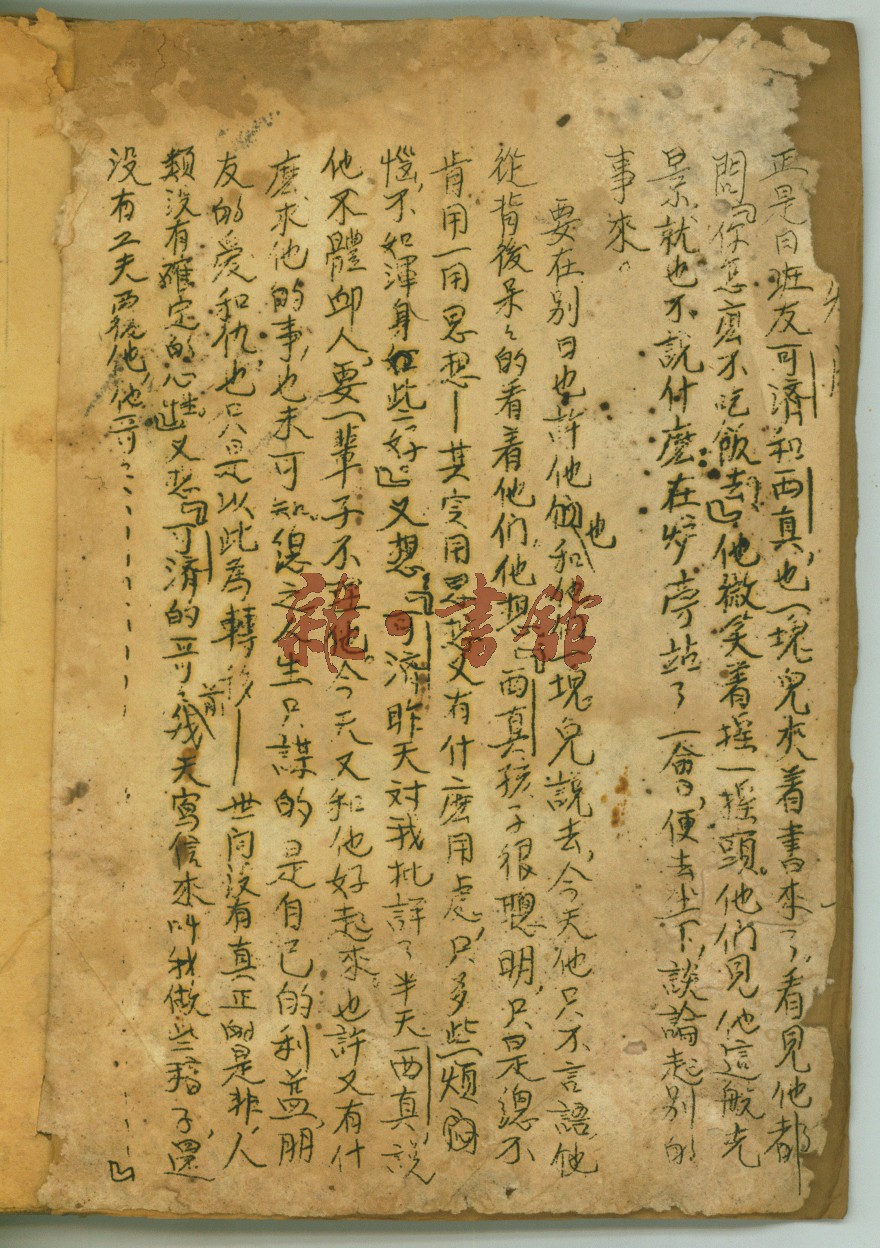 正是同班友可濟和西真，也一塊兒夾着書來了，看見他都
問「你怎麼不吃飯去？」他微笑着搖一搖頭。他們見他這般光
景，就也不說什麼在炉旁站了一會，便去坐下，談論起別的
事來。
要在別日也許他也和他們一塊兒說去，今天他只不言語，他
從背後呆呆的看着他們，他想「西真孩子很聰明，只是總不
肯用一用思想——其實用思想又有什麼用處，只多些煩悶
惱，不如渾身好些好。」又想「可濟昨天對我批評了半天西真，說
他不體卹人，要一輩子不理他。今天又和他好起來。也許又有什
麼求他的事，也未可知。總之人生只謀的是自己的利益，朋
友的愛和仇，也只是以此為轉移——世间没有真正的是非，人
類没有確定的心性。」又想「可濟的哥哥前幾天寫信來叫我做些稿子，還
没有工夫覆他，他哥哥
雜·書館